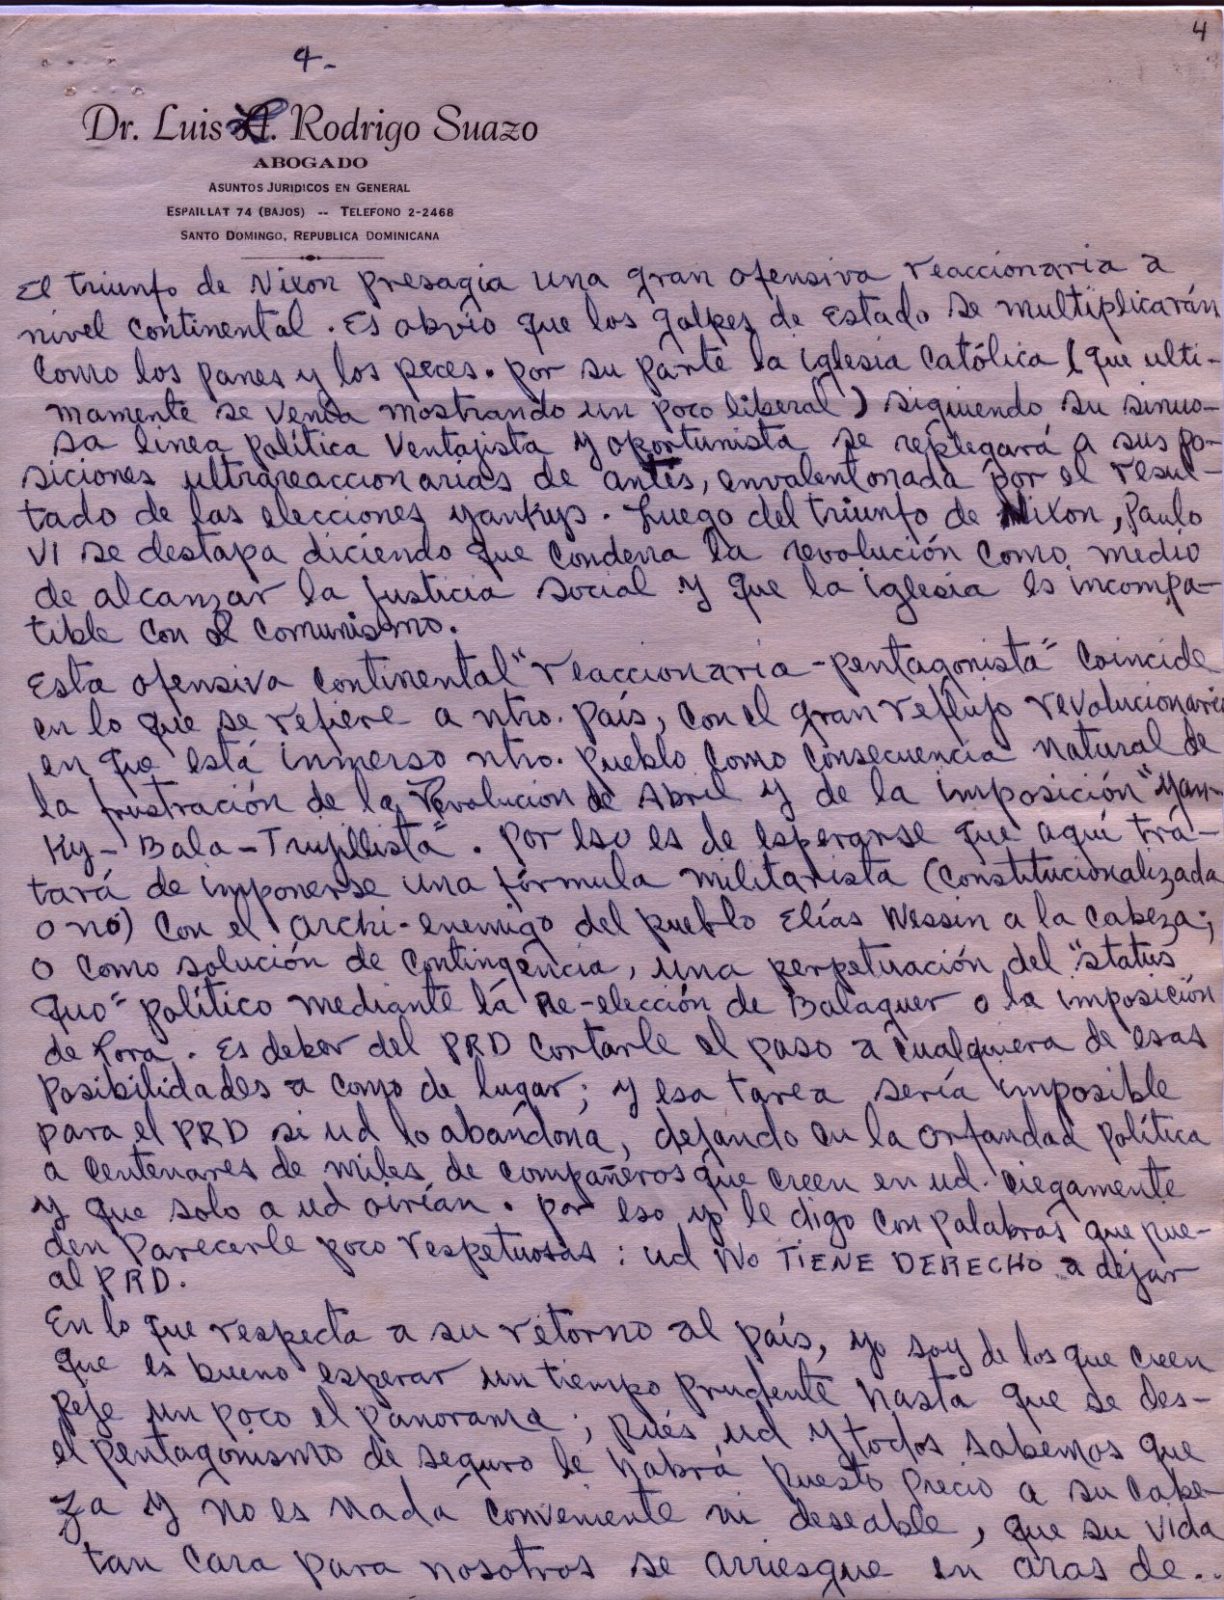 4
4-
Dr. Luis A. Rodrigo Suazo
ABOGADO
ASUNTOS JURIDICOS EN GENERAL
ESPAILLAT 74 (BAJOS) -- TELEFONO 2-2468
SANTO DOMINGO, REPUBLICA DOMINICANA
El triunfo de Nixon presagia una gran ofensiva reaccionaria a
nivel continental. Es obvio que los golpes de Estado se multiplicarán
como los panes y los peces. por su parte la iglesia católica (que ulti-
mamente se venía mostrando un poco liberal) siguiendo su sinuo-
sa linea política ventajista y oportunista se replegará a sus po-
siciones ultrareaccionarias de antes, envalentonada por el resul-
tado de las elecciones yankys. Luego del triunfo de Nixon, Paulo
VI se destapa diciendo que condena la revolución como medio
de alcanzar la justicia social y que la iglesia es incompa-
tible con el comunismo.
Esta ofensiva continental "reaccionaria-pentagonista" coincide
en lo que se refiere a ntro. país, con el gran reflujo revolucionario
en que está inmerso ntro. pueblo como consecuencia natural de
la frustración de la Revolucion de Abril y de la imposición "yan-
ky-Bala-Trujillista". Por eso es de esperarse que aquí tra-
tará de imponerse una fórmula militarista (constitucionalizada
o no) con el archi-enemigo del pueblo Elías Wessin a la cabeza;
o como solución de contingencia, una perpetuación del "status
quo" político mediante la Re-elección de Balaguer o la imposición
de Lora. Es deber del PRD cortarle el paso a cualquiera de esas
posibilidades a como de lugar; y esa tarea sería imposible
para el PRD si ud lo abandona, dejando en la orfandad política
a centenares de miles de compañeros que creen en ud. ciegamente
y que solo a ud oirían. Por eso yo le digo con palabras que pue-
den parecerle poco respetuosas: ud NO TIENE DERECHO a dejar
al PRD.
En lo que respecta a su retorno al país, yo soy de los que creen
que es bueno esperar un tiempo prudente hasta que se des-
peje un poco el panorama; pués ud y todos sabemos que
el pentagonismo de seguro le habrá puesto precio a su cabe-
za y no es nada conveniente ni deseable, que su vida
tan cara para nosotros se arriesgue en aras de..